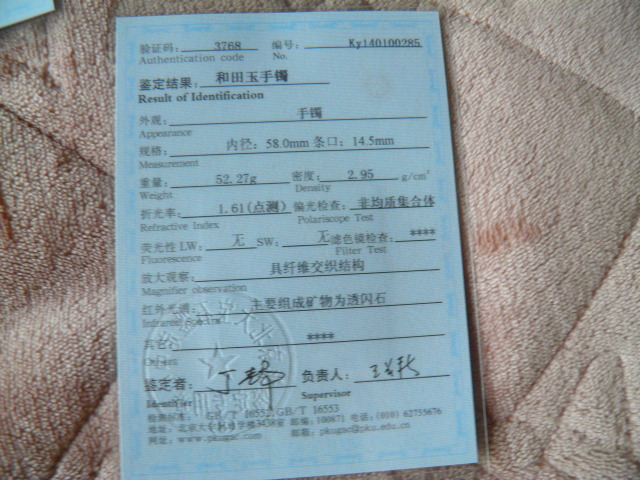 验证码: 3768 编号: Ky140100285
Authentication code No.
鉴定结果: 和田玉手镯
Result of Identification
外观: 手镯
Appearance
规格: 内径: 58.0mm 条口: 14.5mm
Measurement
重量: 52.27g 密度: 2.95 g/cm³
Weight Density
折光率: 1.61(点测) 偏光检查: 非均质集合体
Refractive Index Polariscope Test
荧光性 LW: 无 SW: 无 滤色镜检查: ****
Fluorescence Filter Test
放大观察: 具纤维交织结构
Magnifier observation
红外光谱: 主要组成矿物为透闪石
Infrared spectra
其它: ****
Others
鉴定者: 负责人:
Identifier Supervisor
检测标准: GB/T 16552,GB/T 16553
地址: 北京大学 楼3438室 邮编: 100871 电话: (010) 62755676
网址: www.pkugac.com 邮箱: pkugac@pku.edu.cn